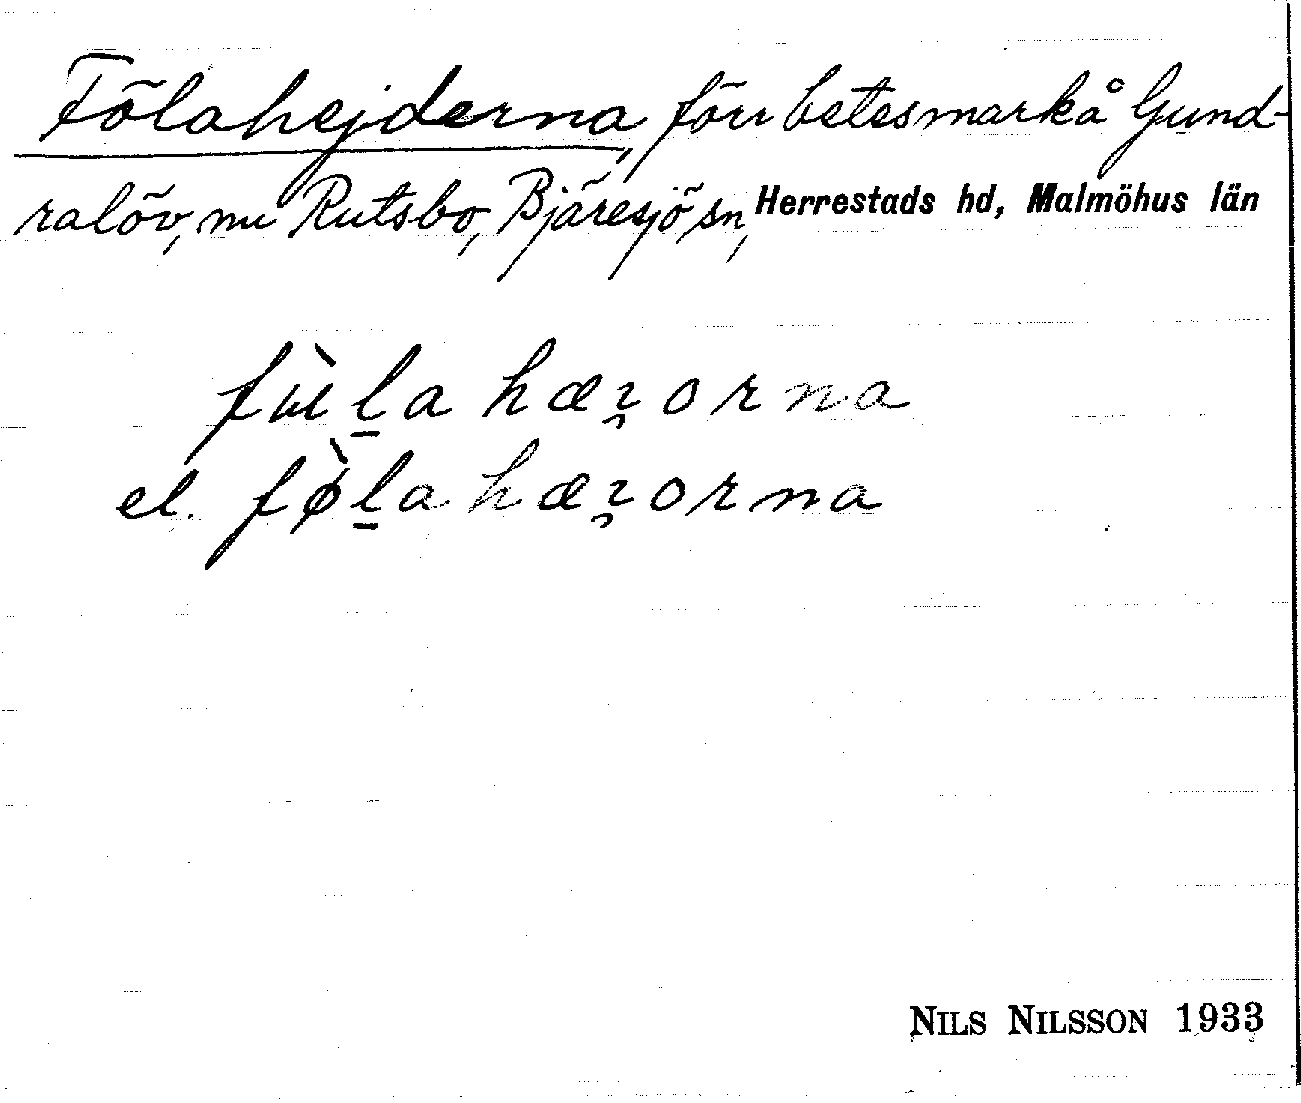 Fölahejderna, förr betesmark å Gund-
ralöv, nu Rutsbo, Bjäresjö sn, Herrestads hd, Malmöhus län
fɯ̀l̠a hæʒorna
el. fø̀l̠a hæʒorna
NILS NILSSON 1933